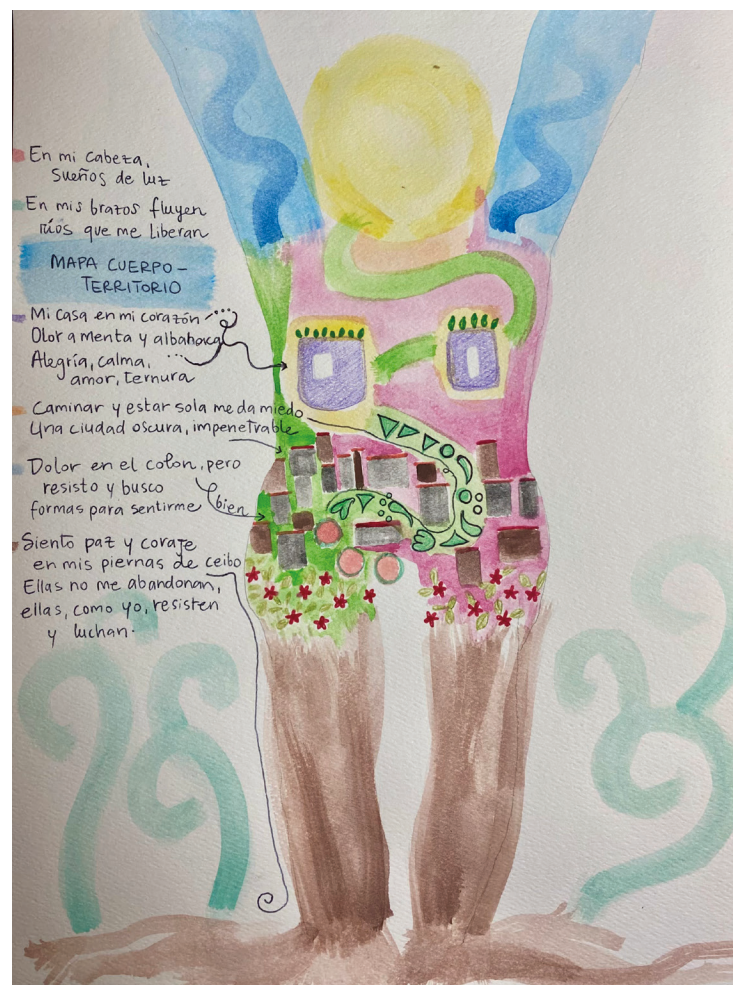 En mi cabeza,
sueños de luz
En mis brazos fluyen
ríos que me liberan
MAPA CUERPO-
TERRITORIO
Mi casa en mi corazón
Olor a menta y albahaca
Alegría, calma,
amor, ternura
Caminar y estar sola me da miedo
Una ciudad oscura, impenetrable
Dolor en el colon, pero
resisto y busco
formas para sentirme bien
Siento paz y coraje
en mis piernas de ceibo
Ellas no me abandonan,
ellas, como yo, resisten
y luchan.